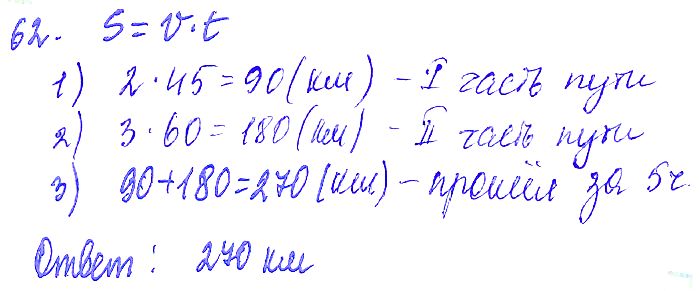 62. S = v · t
1) 2 · 45 = 90 (км) – I часть пути
2) 3 · 60 = 180 (км) – II часть пути
3) 90 + 180 = 270 (км) – прошёл за 5 ч.
Ответ: 270 км